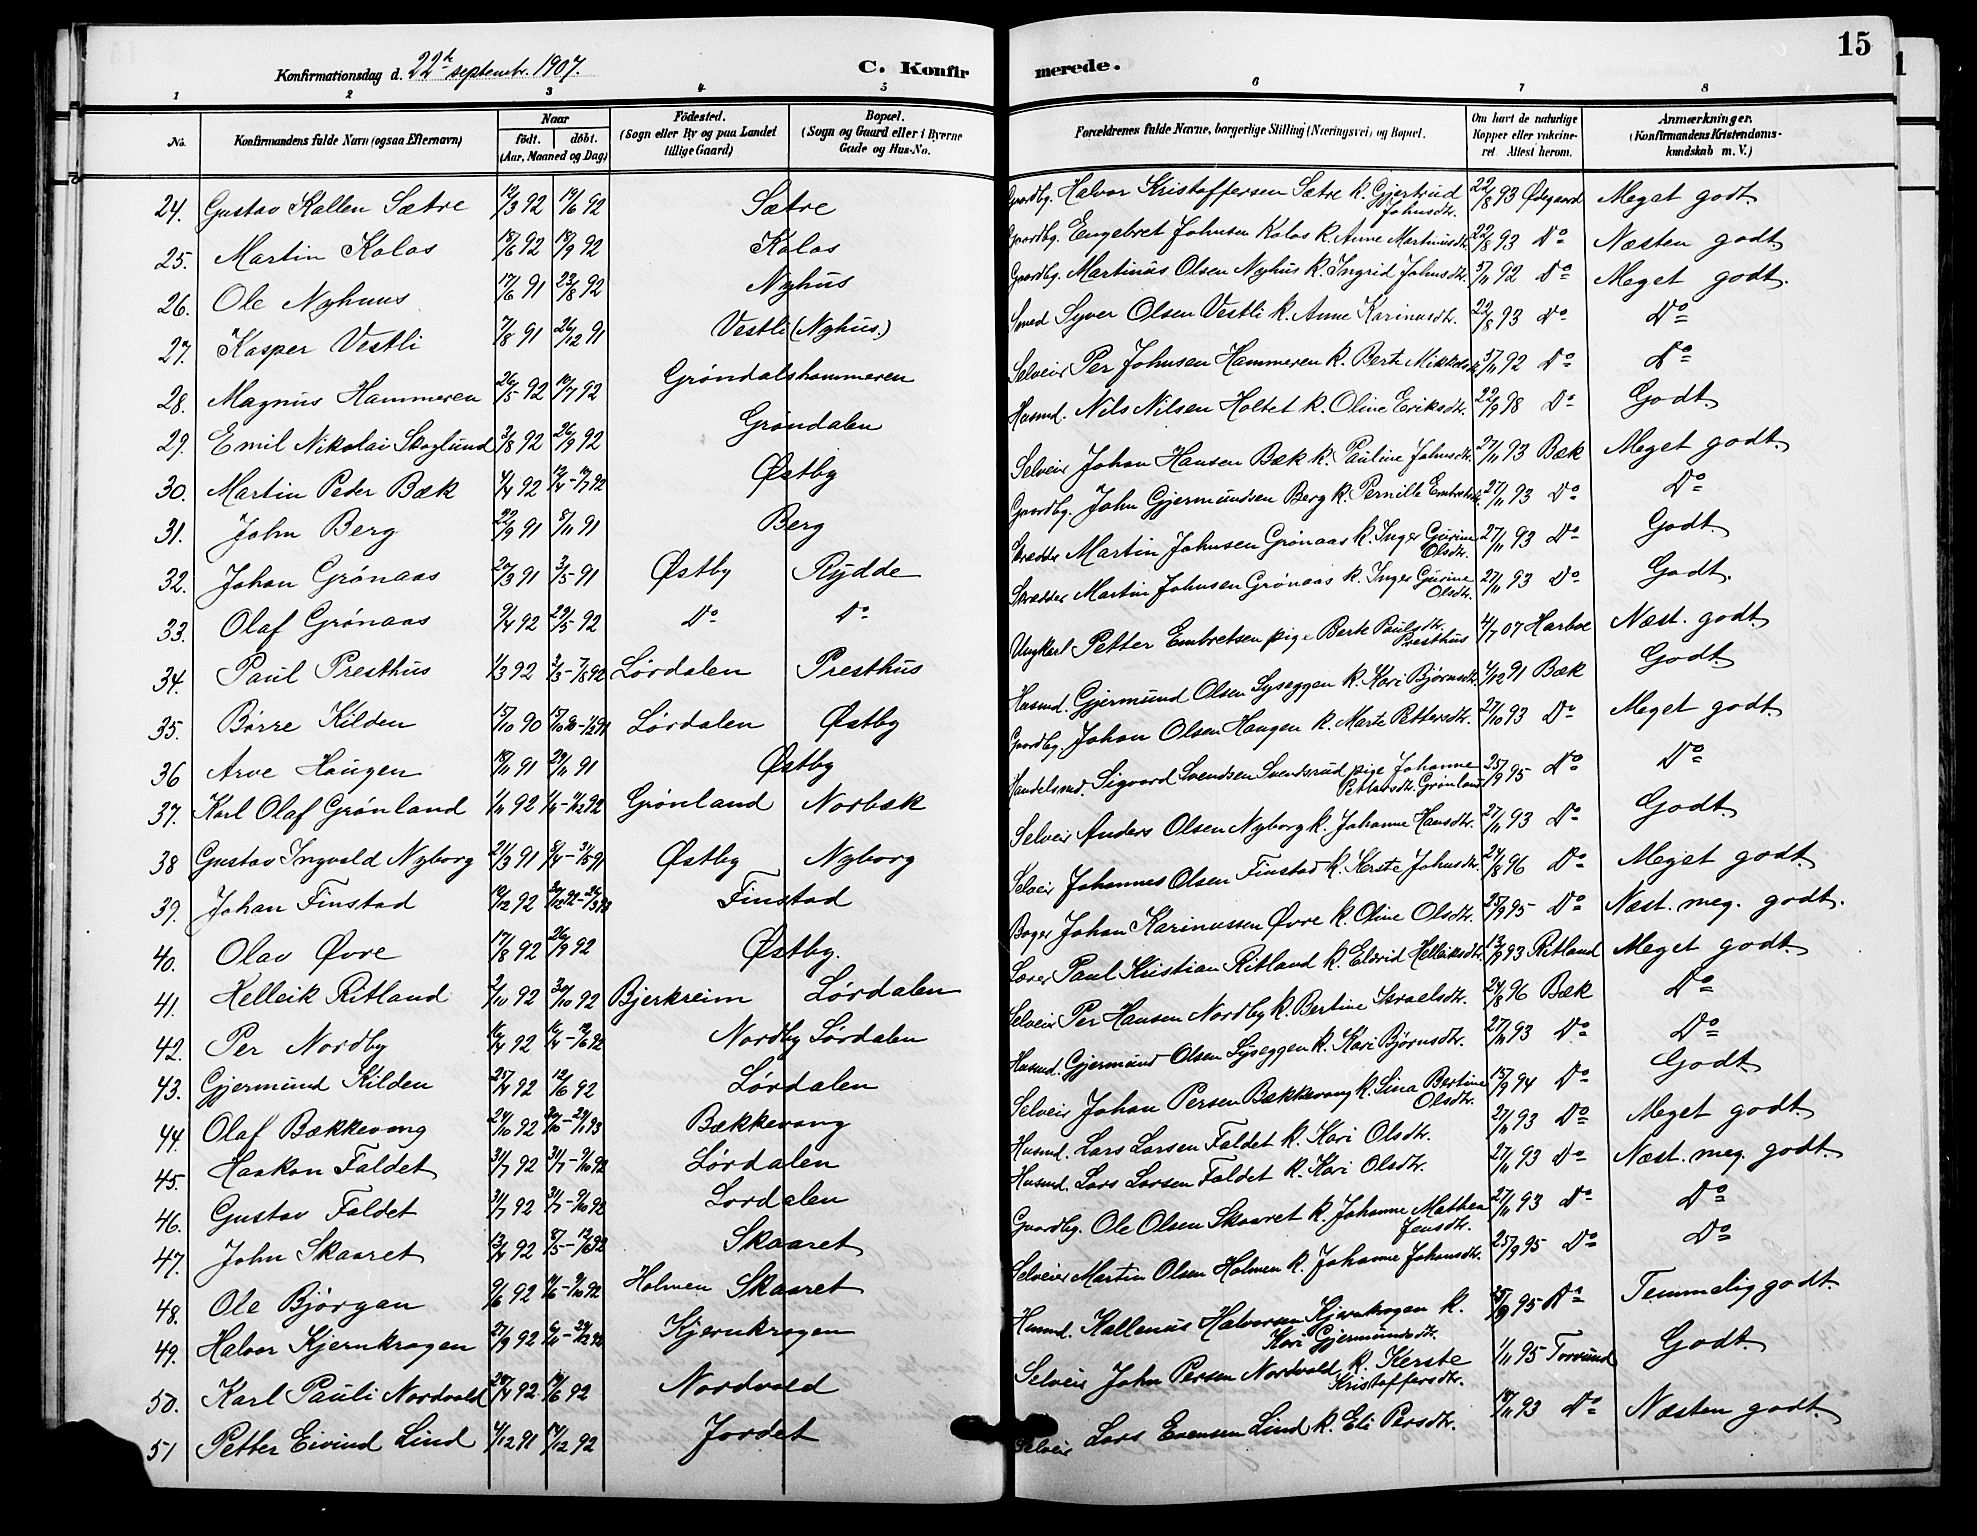 15
Konfirmationsdag d. 22de septembr. 1907.
C. Konfirmerede.
1 2 3 4 5 6 7 8
No. Konfirmandens fulde Navn (ogsaa Efternavn) Naar født. døbt. (Aar, Maaned og Dag) Fødested. (Sogn eller By og paa Landet tillige Gaard) Bopæl. (Sogn og Gaard eller i Byerne Gade og Hus-No. Forældrenes fulde Navne, borgerlige Stilling (Næringsvei) og Bopæl. Om havt de naturlige Kopper eller vakcineret Attest herom. Anmærkninger. (Konfirmandens Kristendomskundskab m. V.)
24. Gustav Kallen Sætre 12/3 92 19/6 92 Sætre Gaardbg. Halvor Kristoffersen Sætre k. Gjertrud Johnsdtr. 22/8 93 Ødegaard Meget godt
25. Martin Kolos 18/6 92 18/9 92 Kolos Gaardbg. Engebret Johnsen Kolos k. Anne Martinusdtr. 22/8 93 Do Næsten godt
26. Ole Nyhuus 17/6 91 23/8 92 Nyhus Gaardbg. Martinus Olsen Nyhus k. Ingrid Johnsdtr. 92 Do Meget godt.
27. Kasper Vestli 7/8 91 26/12 91 Vestli (Nyhus.) Smed Syver Olsen Vestli k. Anne Karinusdtr. 22/8 93 Do Do
28. Magnus Hammeren 26/5 92 10/7 92 Grøndalshammeren Selveier Per Johnsen Hammeren k. Berte 92 Do Do
29. Emil Nikolai Skoglund 3/8 92 26/9 92 Grøndalen Husmd. Nils Nilsen Holtet k. Oline Eriksdtr. 22/9 98 Do Godt
30. Martin Peder Bæk 4/4 92 Østby Selveier Johan Hansen Bæk k. Pauline Johnsdtr. 27/11 93 Bæk Meget godt.
31. John Berg 22/9 91 8/11 91 Berg Gaardbg. John Gjermundsen Berg k. Pernille Embretsdtr. 27/11 93 Do Do
32. Johan Grønaas 20/3 91 3/5 91 Østby Rydde Skrædder Martin Johnsen Grønaas k. Inger Gurine Olsdtr. 27/11 93 Do Godt.
33. Olaf Grønaas 9/4 92 29/5 92 Do Do Skrædder Martin Johnsen Grønaas k. Inger Gurine Olsdtr. 27/11 93 Do Godt.
34. Paul Presthus 1/3 92 Lørdalen Presthus Ungkarl Petter Embretsen pige Berte Paulsdtr. Presthus 4/7 07 Harboe Næst. godt
35. Børre Kilden 15/10 90 Lørdalen Østby Husmd. Gjermund Olsen Lyseggen k. Kari Bjørnsdtr. 4/12 91 Bæk Godt.
36 Arve Haugen 18/11 91 29/11 91 Østby Gaardbg. Johan Olsen Haugen k. Marte Pettersdtr. 27/10 93 Do Meget godt.
37. Karl Olaf Grønland 1/11 92 Grønland Norbæk Handelsmd. Sigvard Svendsen Svendsrud pige Johanne Petters dtr. Grønland 25/9 95 Do Do
38 Gustav Ingvald Nyborg 21/3 91 Østby Nyborg Selveier Anders Olsen Nyborg k. Johanne Hansdtr. 27/11 93 Do Godt
39. Johan Finstad 10/12 92 Finstad Selveier Johannes Olsen Finstad k. Kerste Johnsdtr. 24/8 96 Do Meget godt.
40. Olav Øvre 17/8 92 26/9 92 Østby. Bager Johan Karinussen Øvre k. Oline Olsdtr. 25/9 95 Do Næst. meg. godt.
41. Helleik Ritland 2/10 92 30/10 92 Bjerkreim Lørdalen Lærer Paul Kristian Ritland k. Eldrid Helleiksdtr. 13/9 93 Ritland Meget godt.
42. Per Nordby 16/4 92 Nordby Lørdalen Selveier Per Hansen Nordby k. Bertine Israelsdtr. 24/8 96 Bæk Do
43. Gjermund Kilden 25/4 92 12/6 92 Lørdalen Husmd. Gjermund Olsen Lyseggen k. Kari Bjørnsdtr. 27/11 93 Do Do
44. Olaf Bækkevang 24/10 92 Bækkevang Selveier Johan Persen Bækkevang k. Lina Bertine Olsdtr. 15/9 94 Do Godt
45. Haakon Faldet 31/7 92 Lørdalen Husmd. Lars Larsen Faldet k. Kari Olsdtr. 27/11 93 Do Meget godt.
46. Gustav Faldet 31/7 92 Lørdalen Husmd. Lars Larsen Faldet k. Kari Olsdtr. 27/11 93 Do Næst. meg. godt.
47. John Skaaret 13/4 92 Skaaret Gaardbg. Ole Olsen Skaaret k. Johanne Mathea Jensdtr. 27/11 93 Do Do
48. Ole Bjørgan 9/6 92 Holmen Skaaret Selveier Martin Olsen Holmen k. Johanne Johansdtr. 25/9 95 Do Do
49. Halvor Kjernkrogen 27/9 92 Kjernkrogen Husmd. Kallenius Halvorsen Kjernkrogen k. Kari Gjermundsdtr. 25/9 95 Do Temmelig godt.
50. Karl Pauli Nordvold 20/4 92 19/6 92 Nordvold Selveier John Persen Nordvold k. Kerste Kristoffersdtr. 1/11 95 Torsund Godt.
51 Petter Eivind Lind 4/12 91 92 Jordet Selveier Lars Evensen Lind k. Eli Persdtr. 18/11 93 Do Næsten godt.